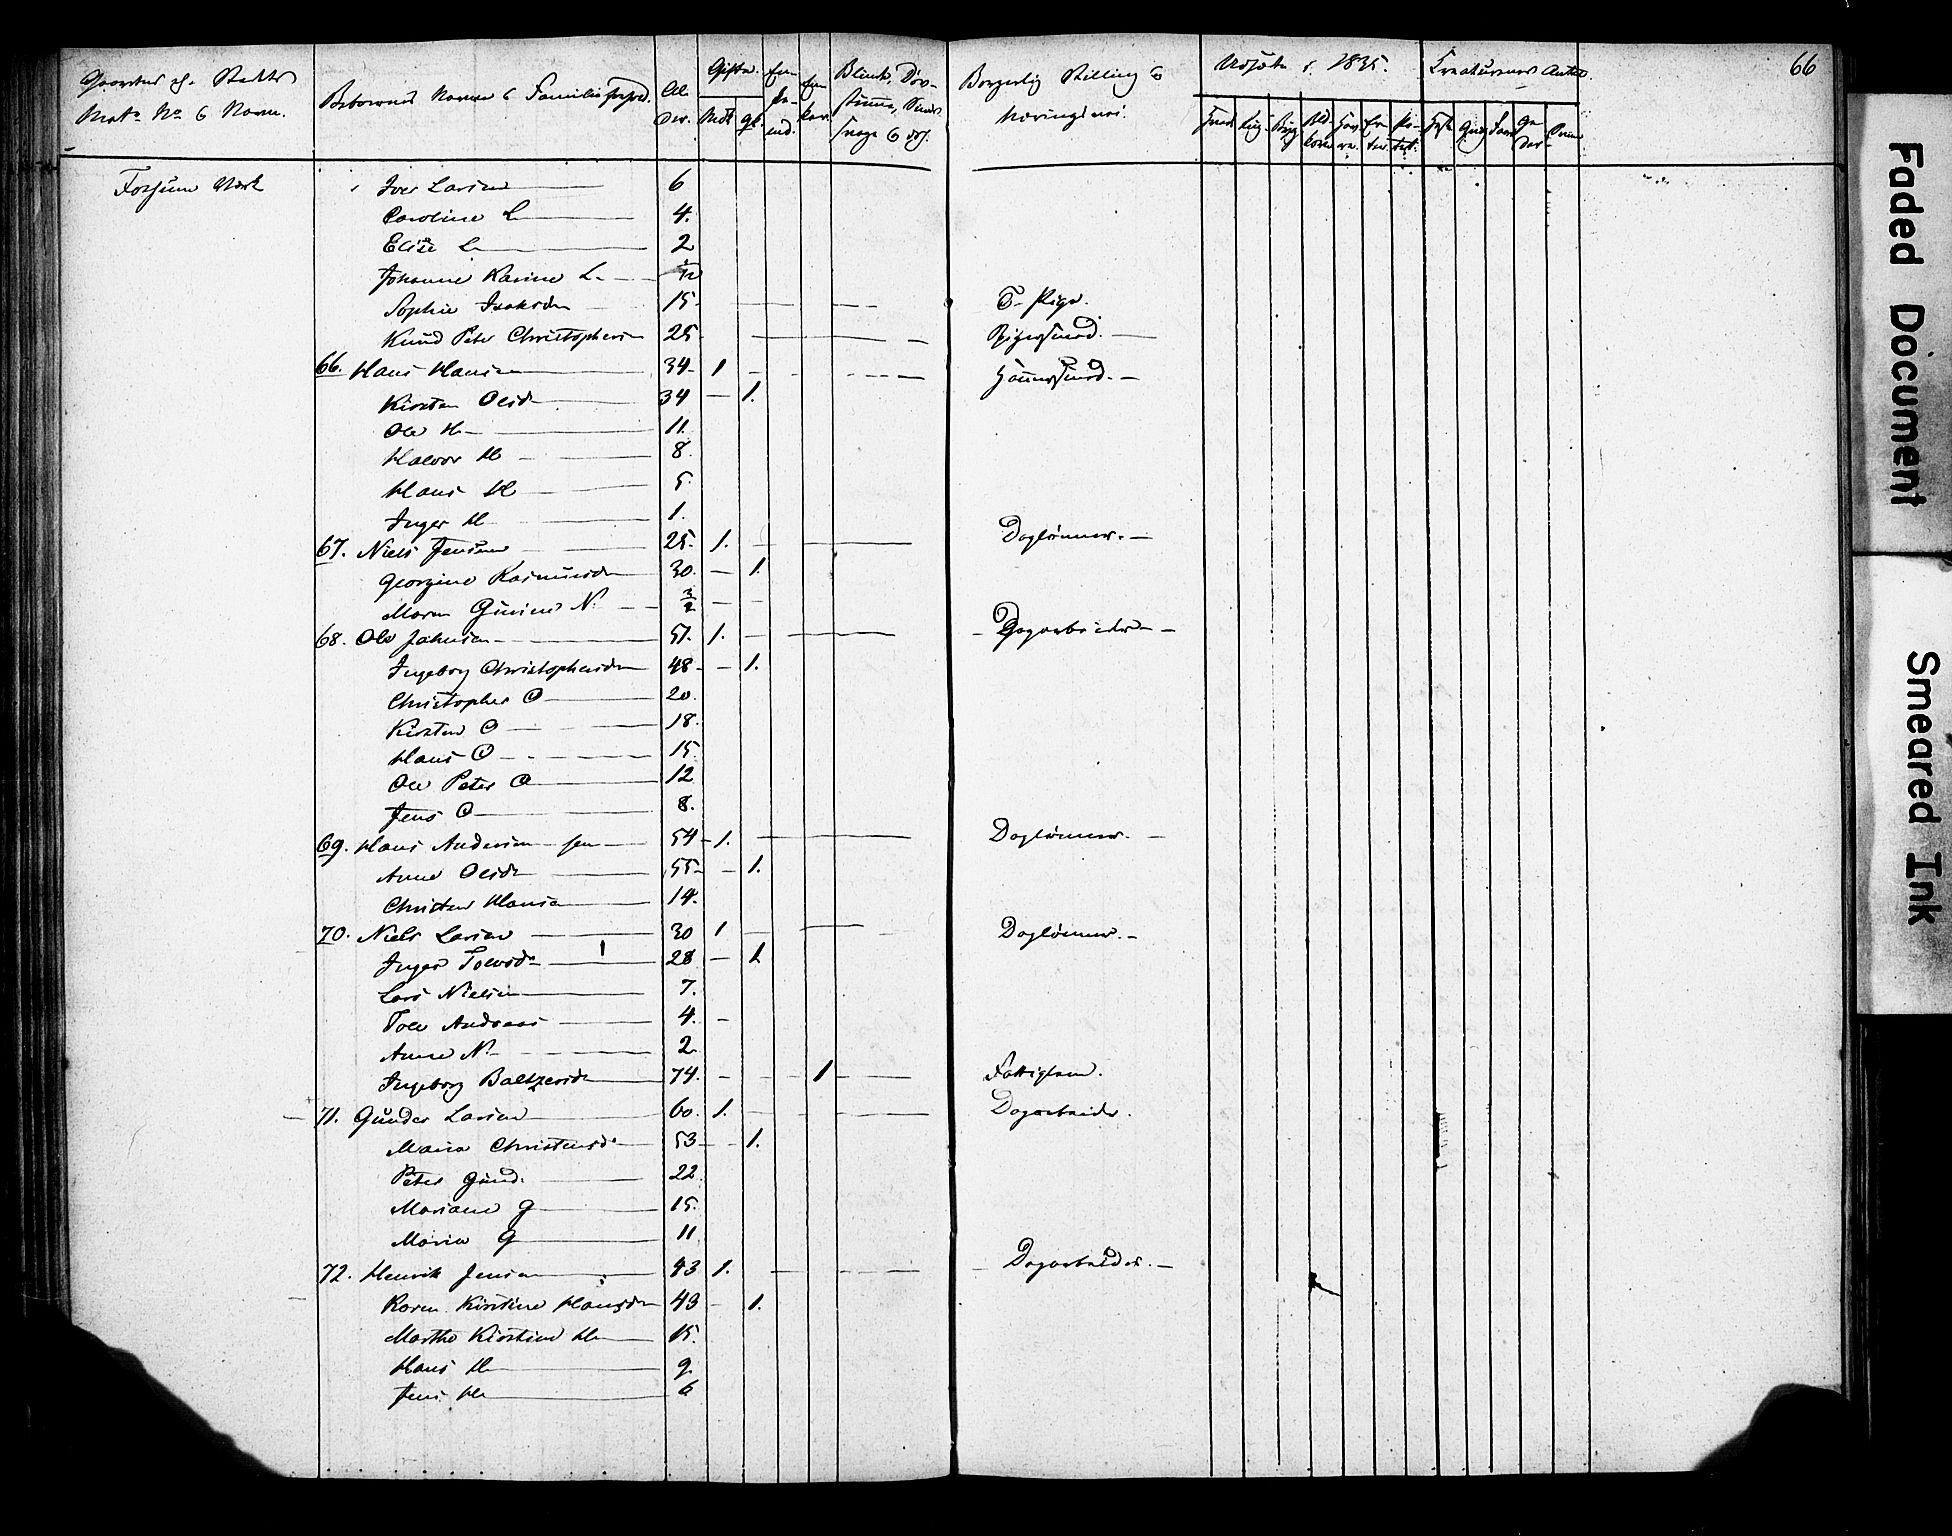 66
Mat. No & Navn.
Beboernes Navne & Familieforhold.
Al-
der.
Gifte.
Mdk
qk.
Blinde, Døv-
stumme, Sinds-
svage & drf.
Borgerlig Stilling &
Næringsvei.
Udsæd i 1835.
Creaturenes Antal.
Fossum Værk
Iver Larsen 6
Caroline L 4.
Elise L 2
Johanne Karine L.
Sophie Isaksdr 15 T. Pige.
Knud Peter Christophersen 25
66. Hans Hansen 34 1
Kirsten Olsdr 34 1.
Ole H 11.
Halvor H 8.
Hans H 5.
Inger H 1.
67. Niels Jensen 25. 1. Daglønner.
Georgine Rasmusdr 30. 1.
Maren Gurine N. 3/2
68. Ole Johnsen 51. 1. Dagarbeider
Ingeborg Christophersdr 48 1.
Christopher O 20.
Kirsten O 18.
Hans O 15
Ole Peter O 12
Jens O 8.
69. Hans Andersen sen 54 1. Daglønner.
Anne Olsdr 55 1.
Christen Hansen 14.
70. Niels Larsen 30 1 Daglønner.
Inger Tolevsdr 28 1
Lars Nielsen 7.
Tolv Andreas 4.
Anne N. 2
Ingeborg Baltzersdr 74. 1 Fattiglem.
71. Gunder Larsen 60. 1. Dagarbeider.
Maria Christensdr 53 1.
Peter Gund. 22
Mariane G 15.
Maria G 11
72. Henrik Jensen 43 1. Dagarbeider.
Karen Kirstine Hansdr 43 1.
Marthe Kirstine H 15.
Hans H 9
Jens H 6
Faded Document
Smeared Ink